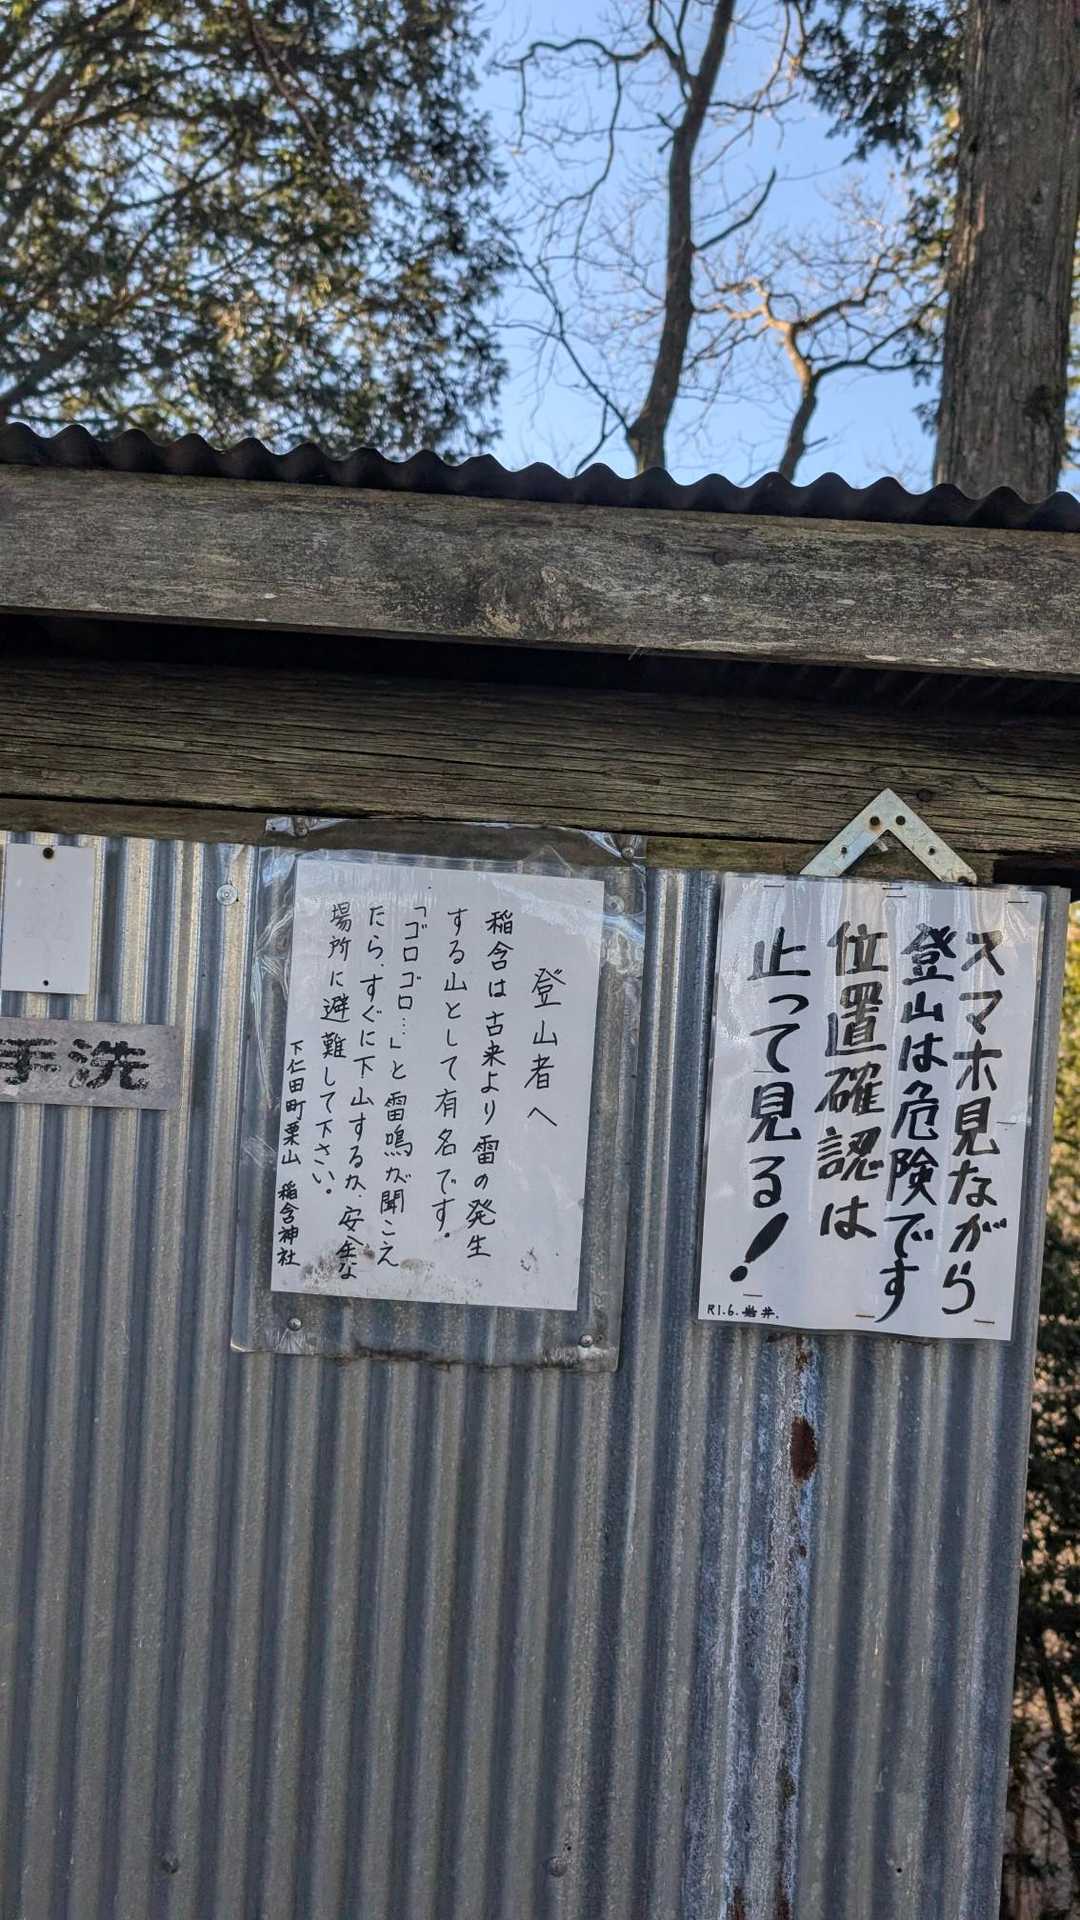 スマホ見ながら
登山は危険です
位置確認は
止って見る!
R1.6.岩井.
登山者へ
稲含は古来より雷の発生
する山として有名です.
「ゴロゴロ…」と雷鳴が聞こえ
たら、すぐに下山するか、安全な
場所に避難して下さい。
下仁田町栗山 稲含神社
手洗